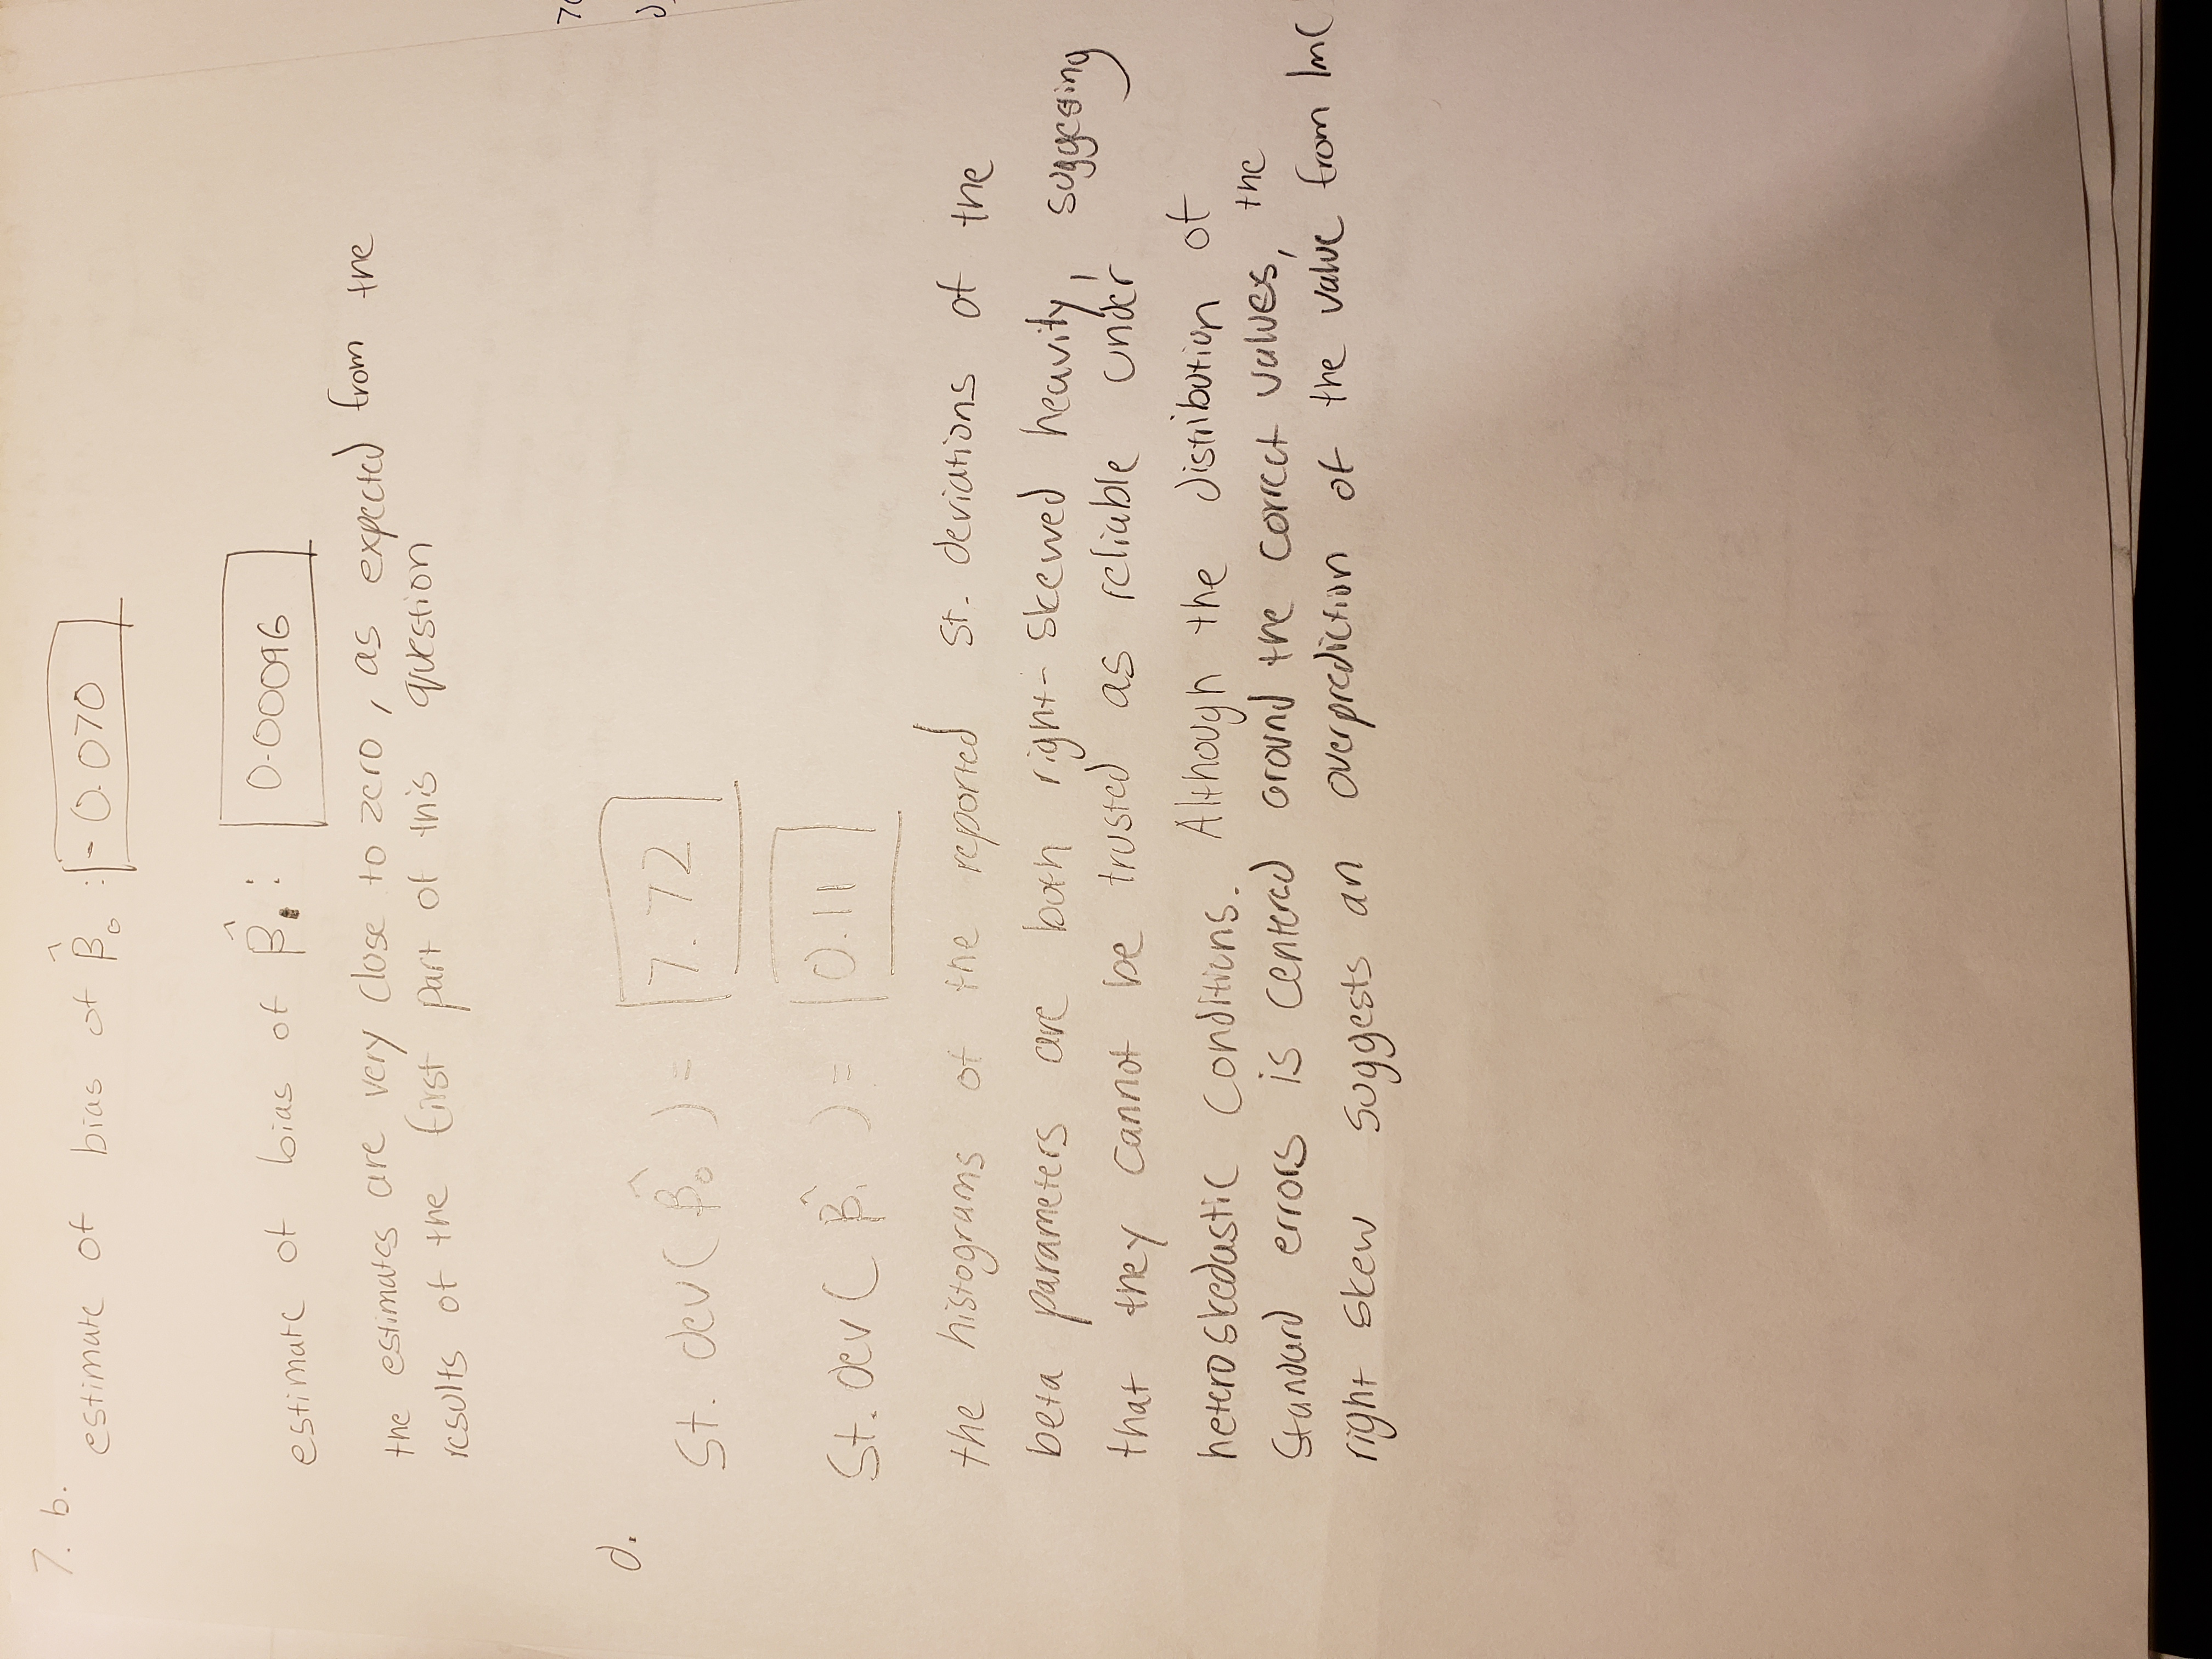 7. b.
estimate of bias of β̂₀ : -0.070
estimate of bias of β̂₁ : 0.00096
the estimates are very close to zero, as expected from the
results of the first part of this question
d.
St. dev( β̂₀ ) = 7.72
St. dev( β̂₁ ) = 0.11
the histograms of the reported st. deviations of the
beta parameters are both right-skewed heavity, suggesting
that they cannot be trusted as reliable under
heteroskedastic conditions. Although the distribution of
standard errors is centered around the correct values, the
right skew suggests an overprediction of the value from lm(